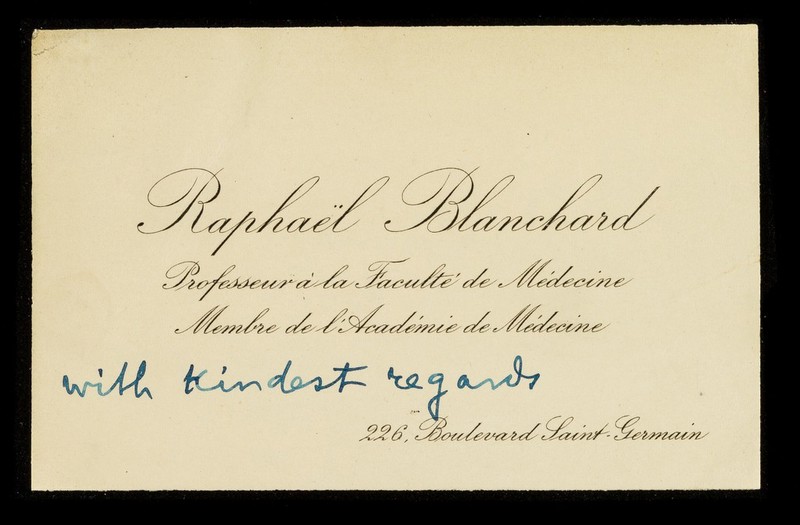 Raphaël Blanchard
Professeur à la Faculté de Médecine
Membre de l'Académie de Médecine
with kindest regards
226, Boulevard Saint-Germain